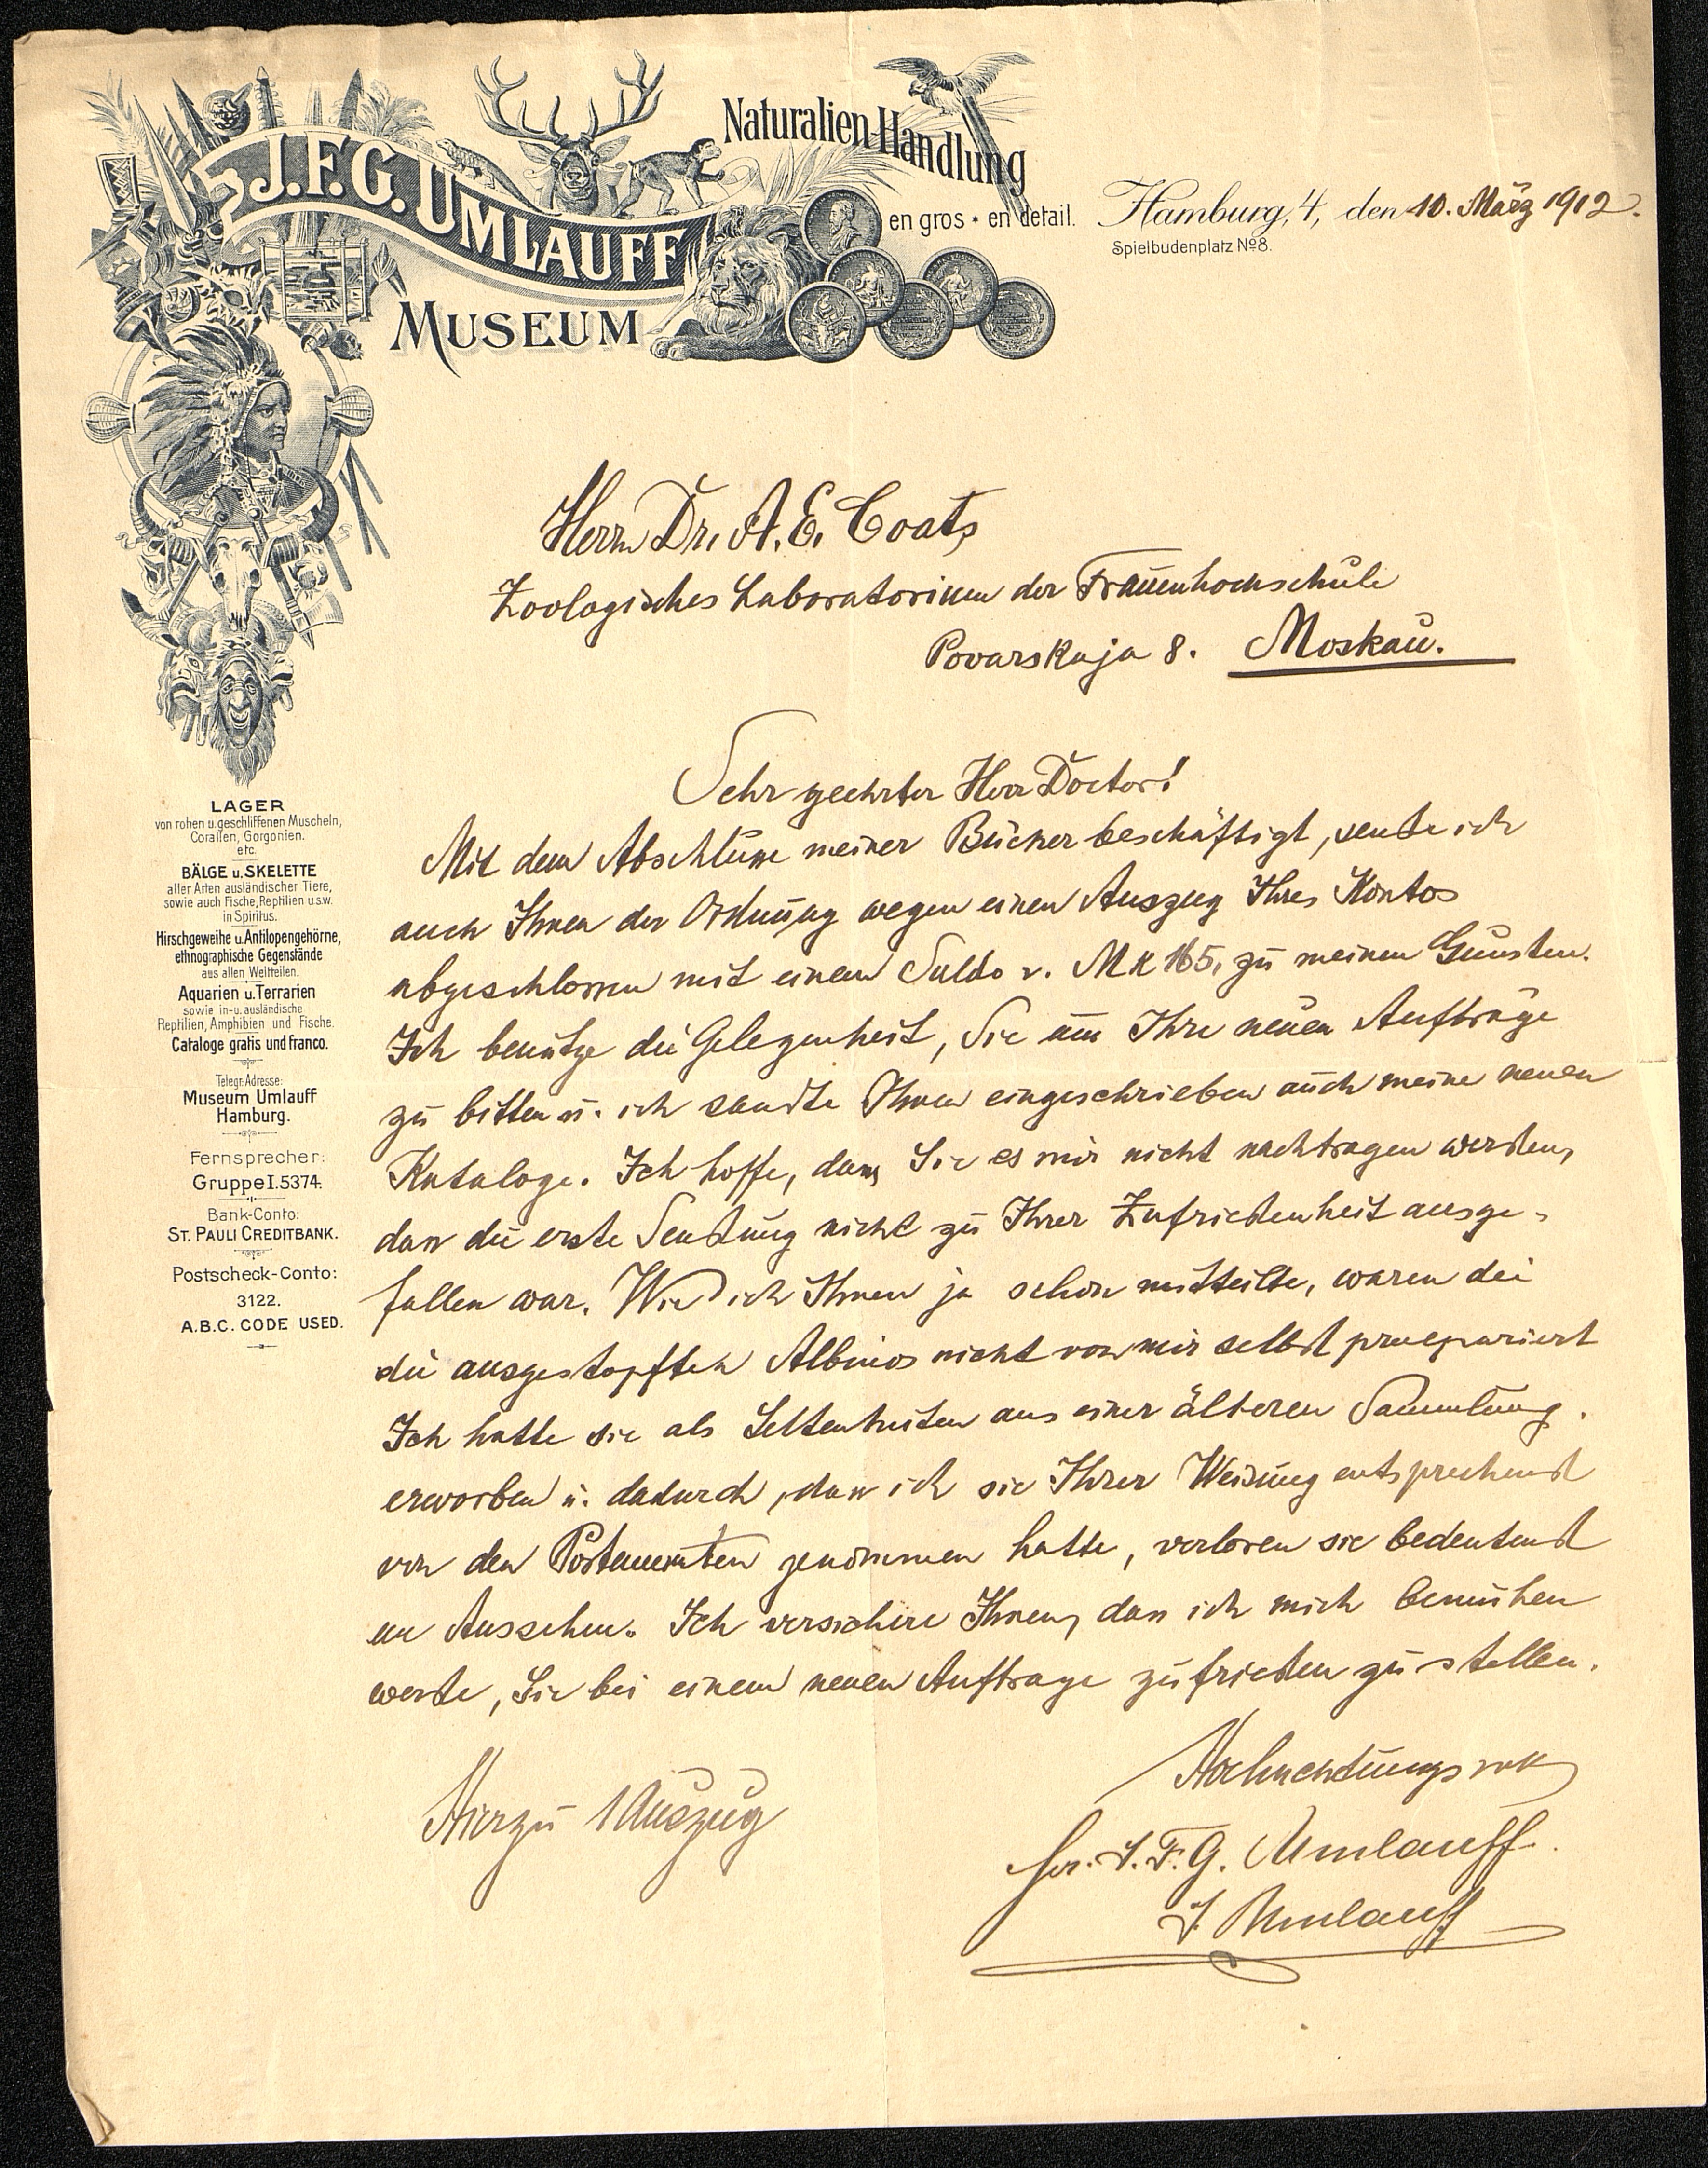 J.F.G. UMLAUFF
MUSEUM
Naturalien-Handlung
en gros • en détail.
Hamburg, 4, den 10. März 1912.
Spielbudenplatz No 8.
LAGER
von rohen u. geschliffenen Muscheln,
Corallen, Gorgonien.
etc.
BÄLGE u. SKELETTE
aller Arten ausländischer Tiere,
sowie auch Fische, Reptilien u.s.w.
in Spiritus.
Hirschgeweihe u. Antilopengehörne,
ethnographische Gegenstände
aus allen Weltteilen.
Aquarien u. Terrarien
sowie in- u. ausländische
Reptilien, Amphibien und Fische.
Cataloge gratis und franco.
Telegr. Adresse:
Museum Umlauff
Hamburg.
Fernsprecher:
Gruppe I. 5374.
Bank-Conto:
ST. PAULI CREDITBANK.
Postscheck-Conto:
3122.
A.B.C. CODE USED.
Herrn Dr. A. E. Coats,
Zoologisches Laboratorium der Frauenhochschule
Povarskaja 8. Moskau.
Sehr geehrter Herr Doctor!
Mit dem Abschlusse meiner Bücher beschäftigt, sende ich
auch Ihnen der Ordnung wegen einen Auszug Ihres Kontos
abgeschlossen mit einem Saldo v. Mk 165, zu meinen Gunsten.
Ich benutze die Gelegenheit, Sie um Ihre neuen Aufträge
zu bitten u. ich sandte Ihnen eingeschrieben auch meine neuen
Kataloge. Ich hoffe, dass Sie es mir nicht nachtragen werden,
dass die erste Sendung nicht zu Ihrer Zufriedenheit ausge-
fallen war. Wie ich Ihnen ja schon mitteilte, waren die
die ausgestopften Albinos nicht von mir selbst praepariert
Ich hatte sie als Seltenheiten aus einer älteren Sammlung.
erworben u. dadurch, dass ich sie Ihrer Weisung entsprechend
von den genommen hatte, verloren sie bedeutend
an Aussehen. Ich versichere Ihnen, dass ich mich bemühen
werde, Sie bei einem neuen Auftrage zufrieden zu stellen.
Hochachtungsvoll
Hierzu 1 Auszug
J. F. G. Umlauff.
J. Umlauff